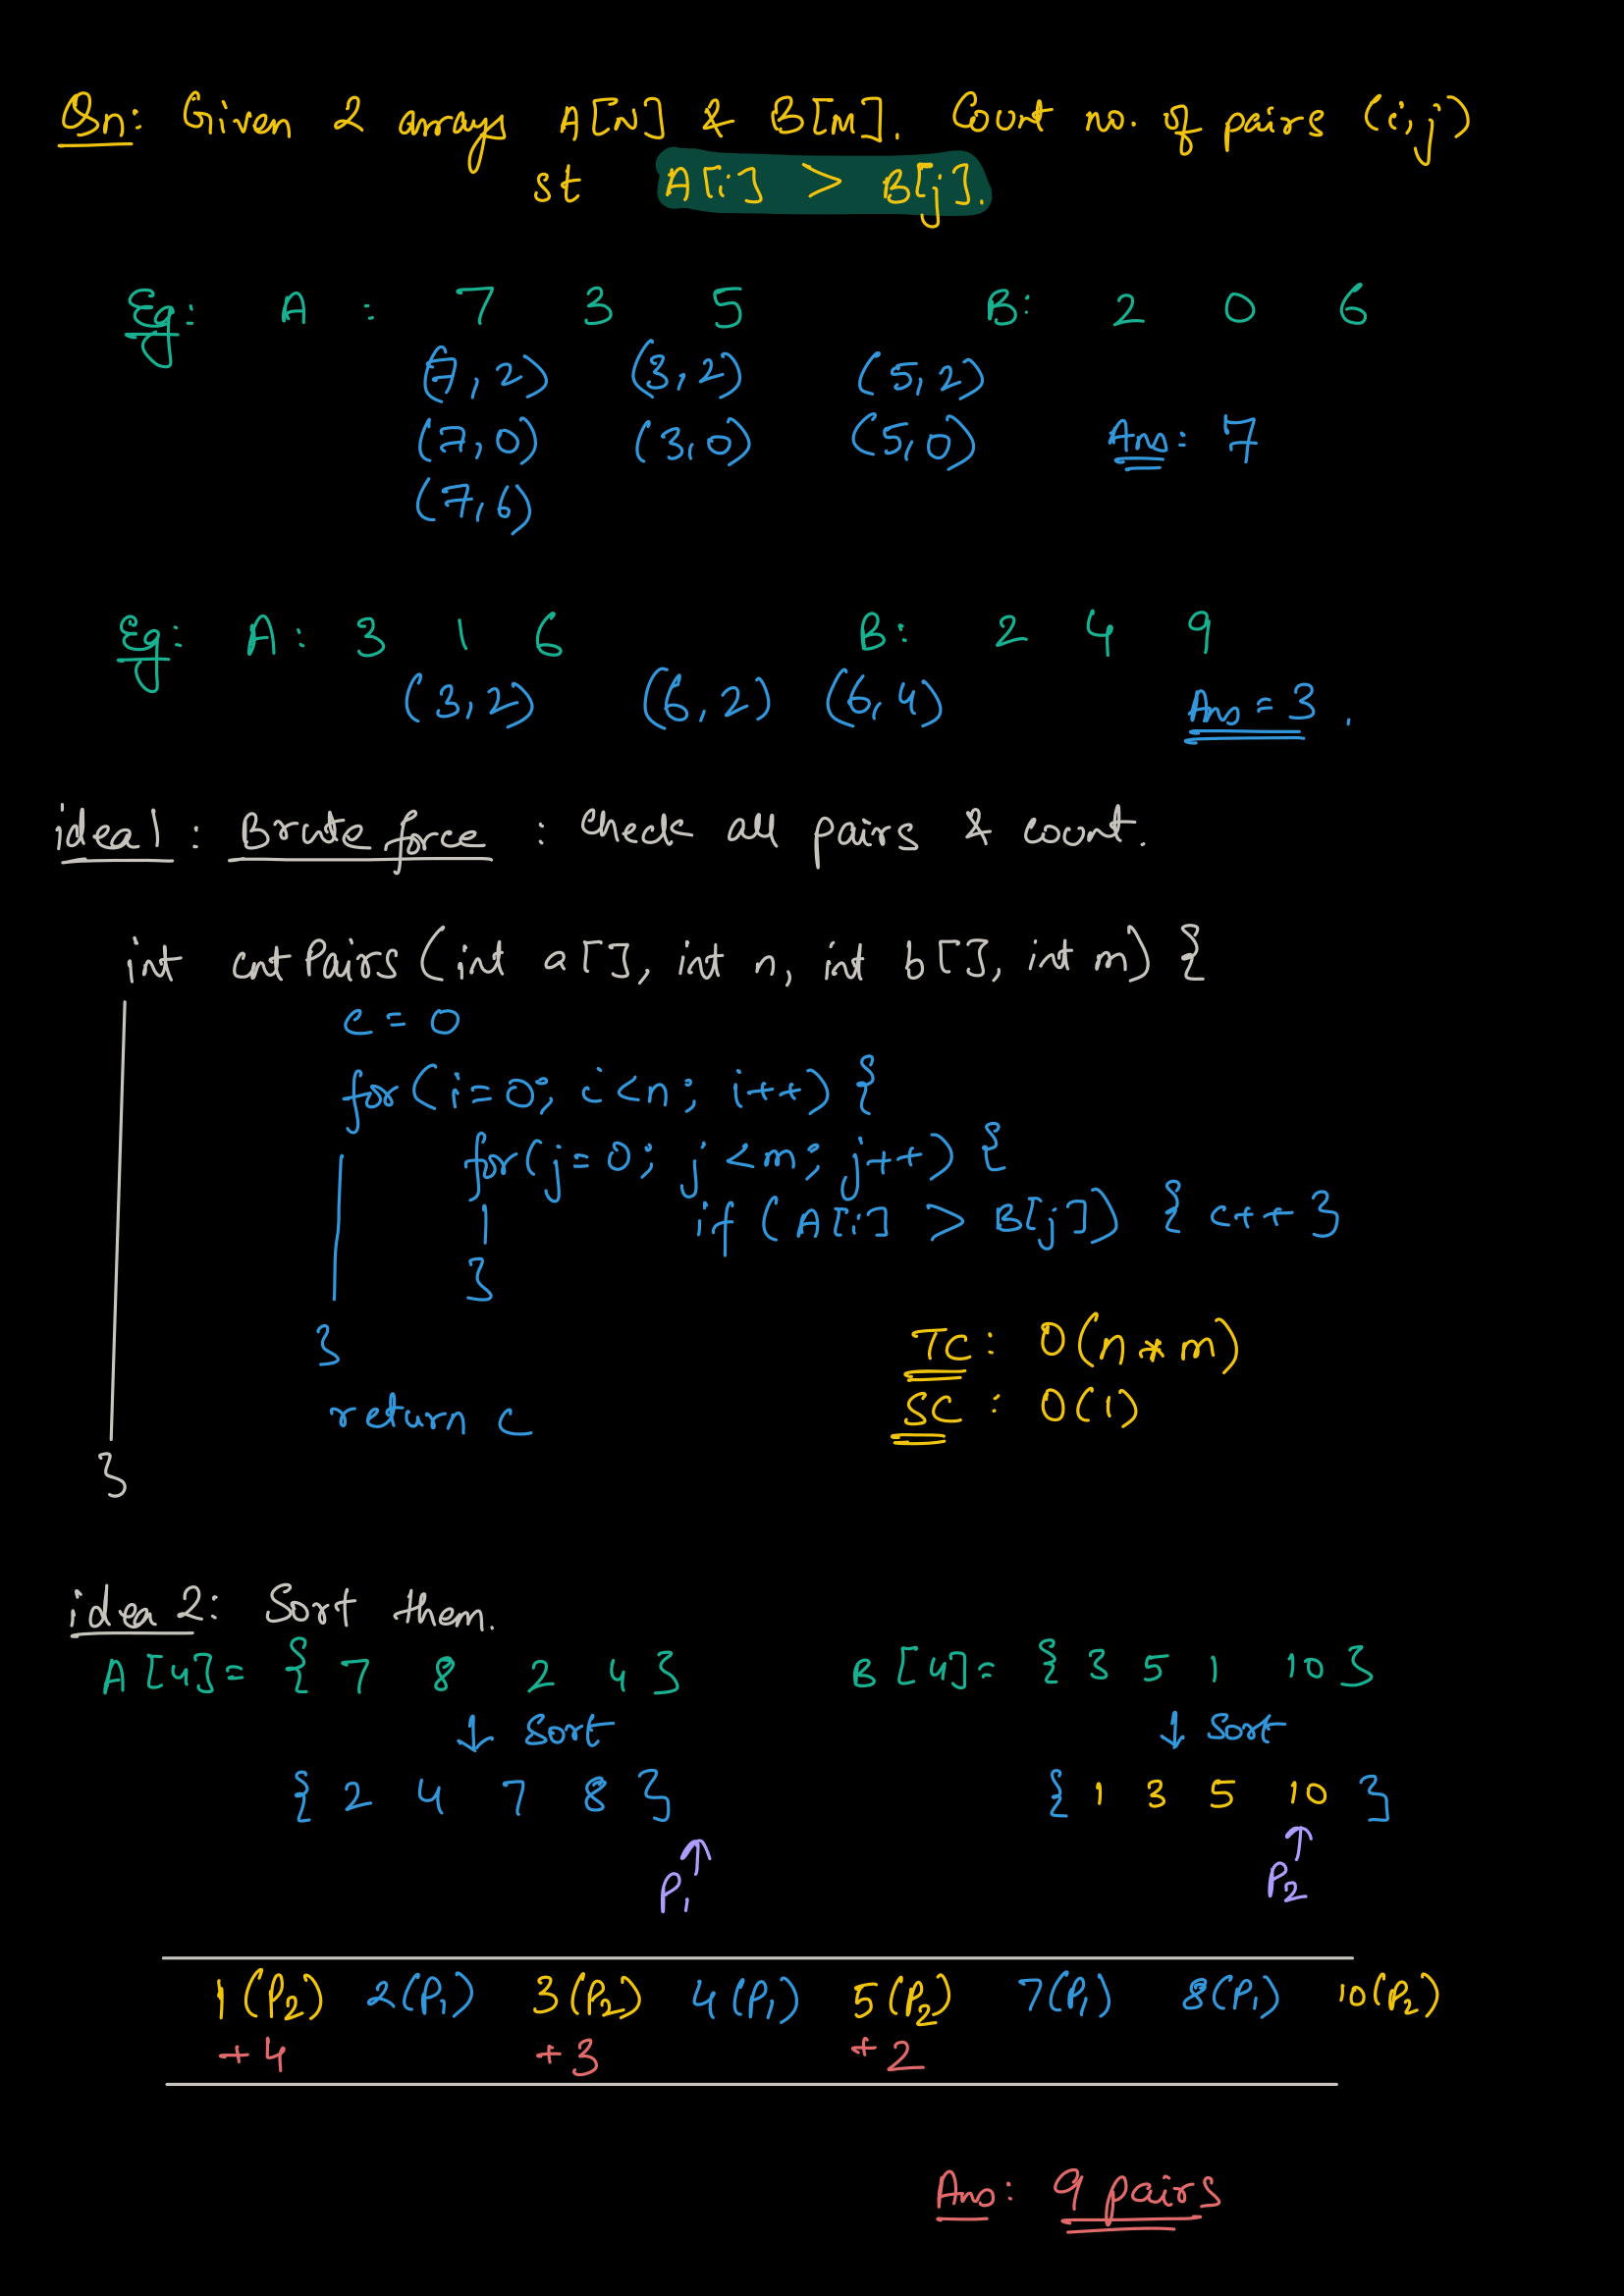 Qn: Given 2 arrays A[N] & B[M]. Count no. of pairs (i,j)
st A[i] > B[j].
Eg: A : 7 3 5 B: 2 0 6
(7,2) (3,2) (5,2)
(7,0) (3,0) (5,0) Ans: 7
(7,6)
Eg: A: 3 1 6 B: 2 4 9
(3,2) (6,2) (6,4) Ans = 3 .
idea 1 : Brute force : check all pairs & count.
int cntPairs (int a[], int n, int b[], int m) {
c = 0
for(i=0; i<n; i++) {
for(j=0; j<m; j++) {
if (A[i] > B[j]) { c++ }
}
} TC: O(n*m)
return c SC : O(1)
}
idea 2: Sort them.
A[4]= { 7 8 2 4 } B[4]= { 3 5 1 10 }
↓ Sort ↓ Sort
{ 2 4 7 8 } { 1 3 5 10 }
↑ ↑
P1 P2
1(P2) 2(P1) 3(P2) 4(P1) 5(P2) 7(P1) 8(P1) 10(P2)
+4 +3 +2
Ans: 9 pairs